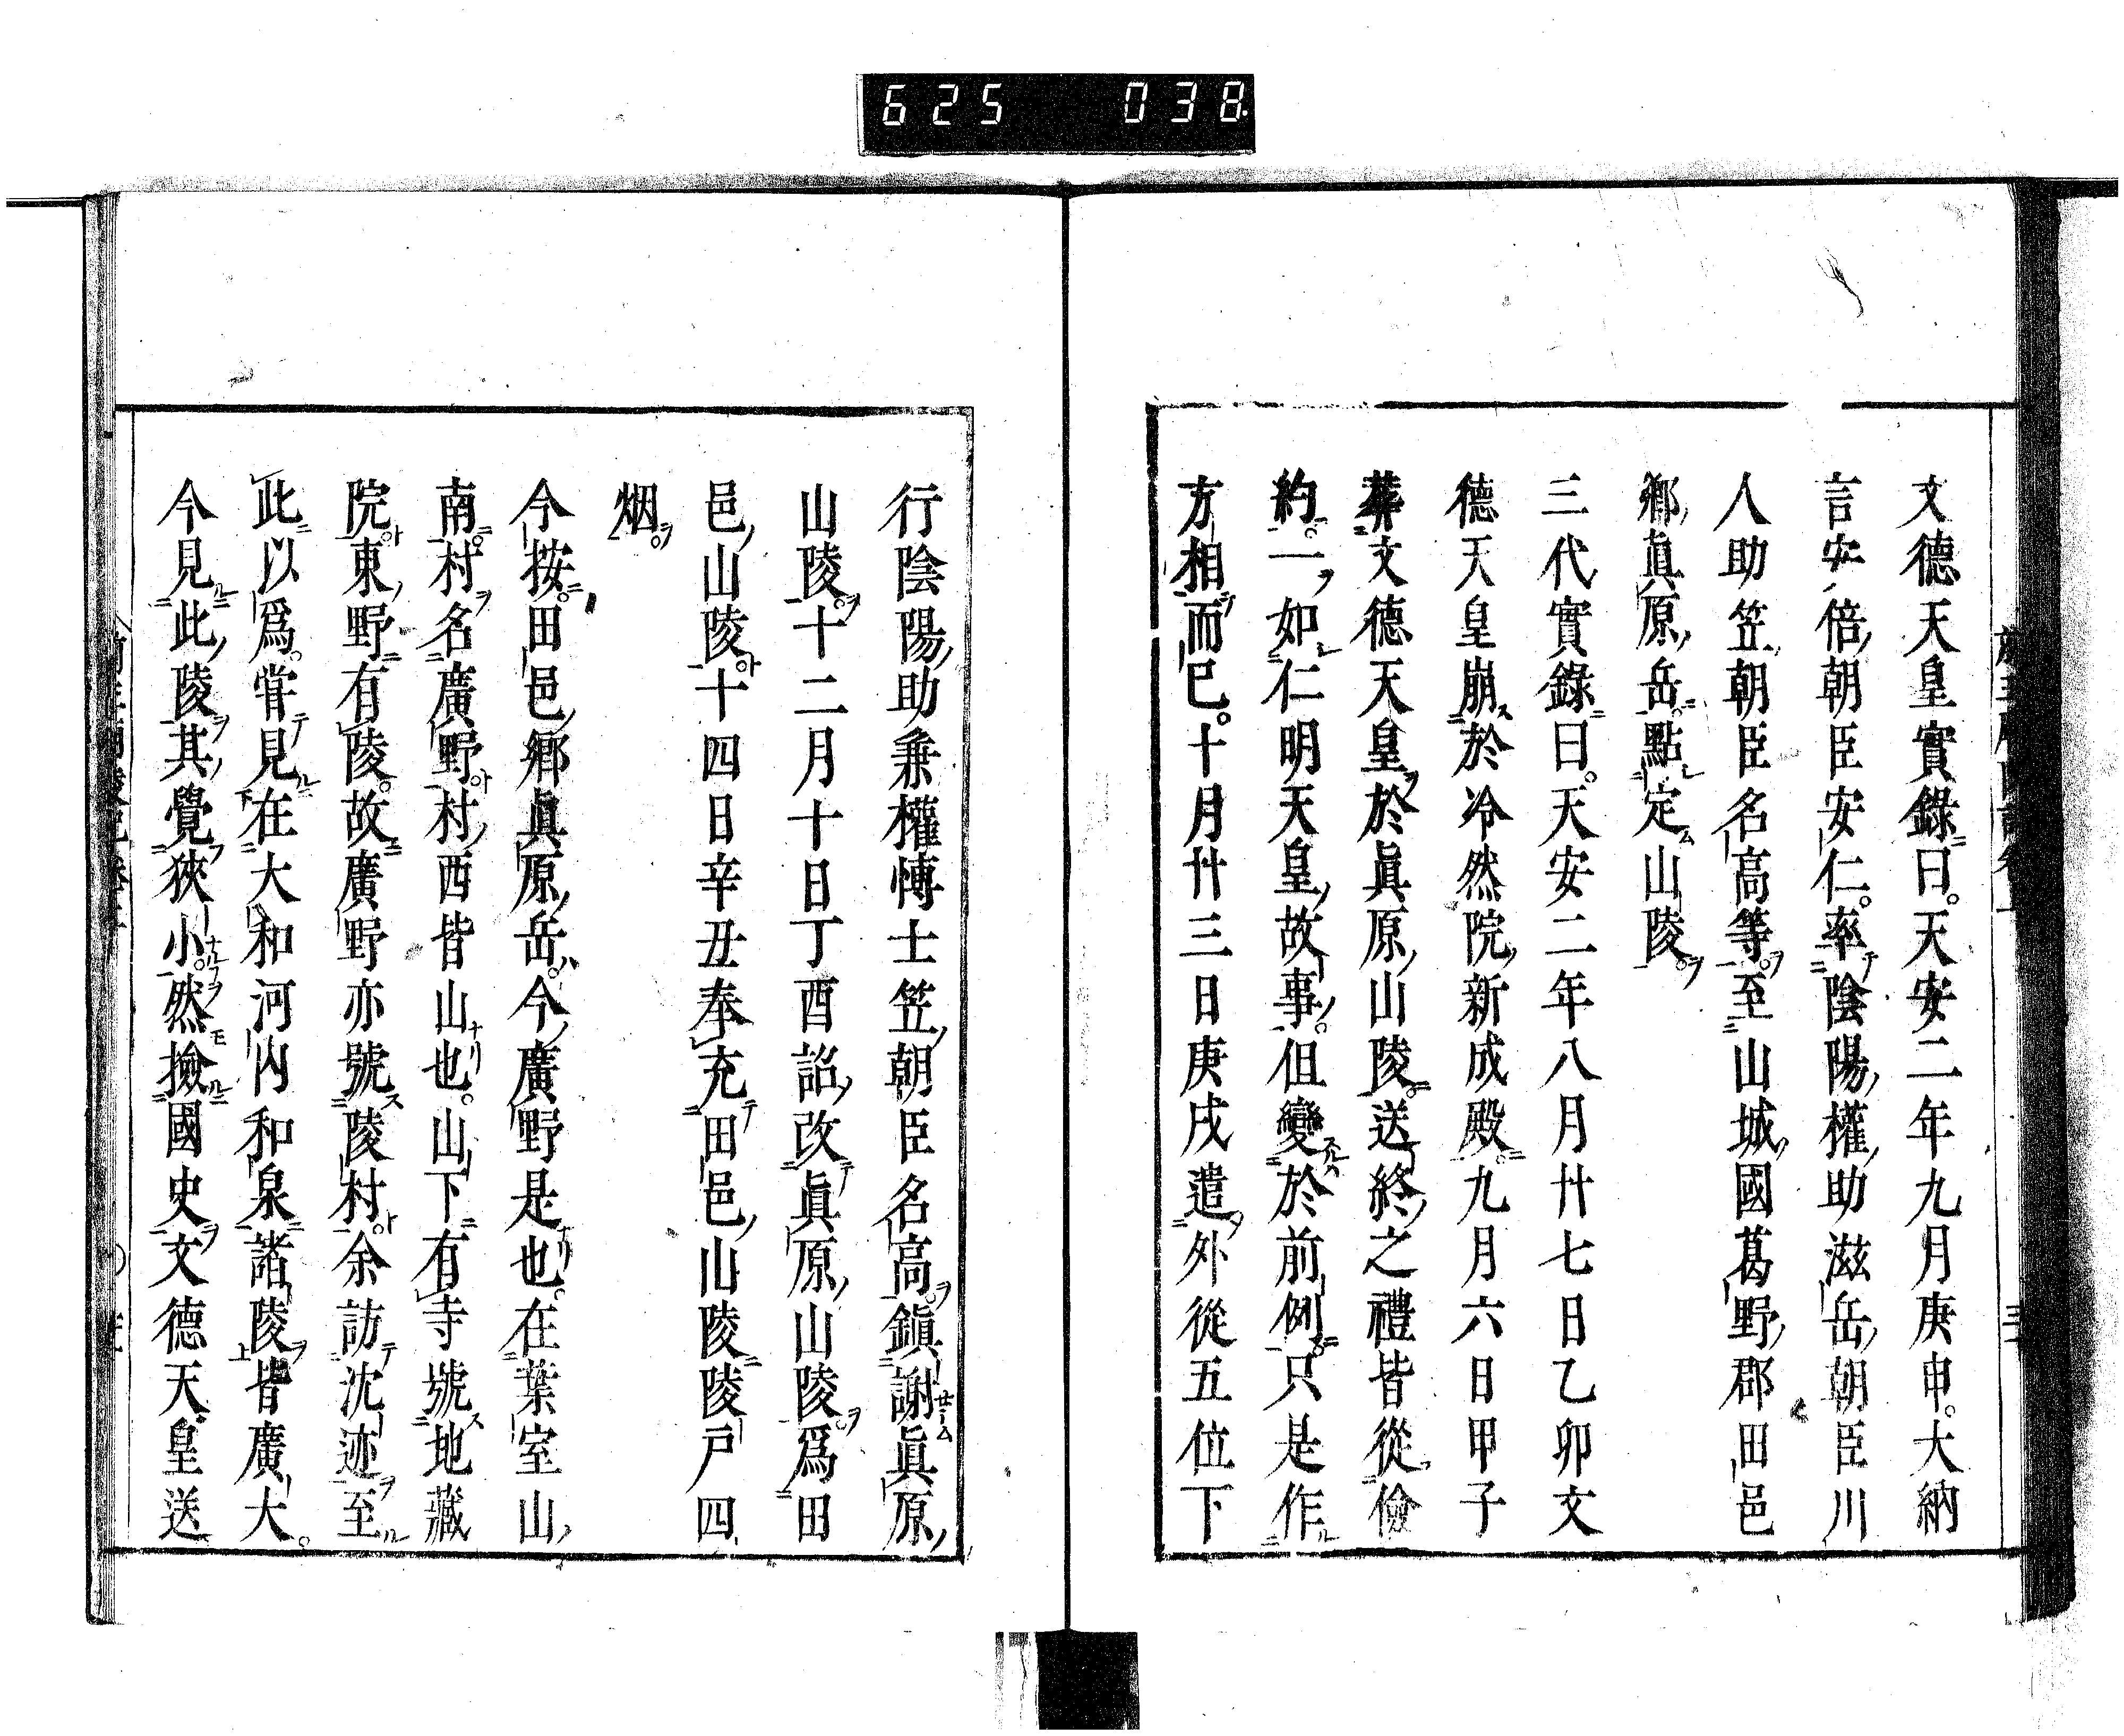 625 038
文德天皇實錄曰。天安二年九月庚申。大納
言安倍朝臣安仁。率陰陽權助滋岳朝臣川
人助笠朝臣名高等。至山城國葛野郡田邑
鄉眞原岳。點定山陵。
三代實錄曰。天安二年八月廿七日乙卯文
德天皇崩於冷然院新成殿。九月六日甲子
葬文德天皇於眞原山陵。送終之禮皆從儉
約。一如仁明天皇故事。但變於前例。只是作
方相而已。十月廿三日庚戌遣外從五位下
行陰陽助兼權博士笠朝臣名高。鎭謝眞原
山陵。十二月十日丁酉詔改眞原山陵。爲田
邑山陵。十四日辛丑奉充田邑山陵陵戶四
烟。
今按。田邑鄉眞原岳。今廣野是也。在葉室山
南。村名廣野村西皆山也。山下有寺號地藏
院。東野有陵。故廣野亦號陵村。余訪沈迹至
此以爲。嘗見在大和河內和泉諸陵皆廣大。
今見此陵其覺狹小。然撿國史文德天皇送